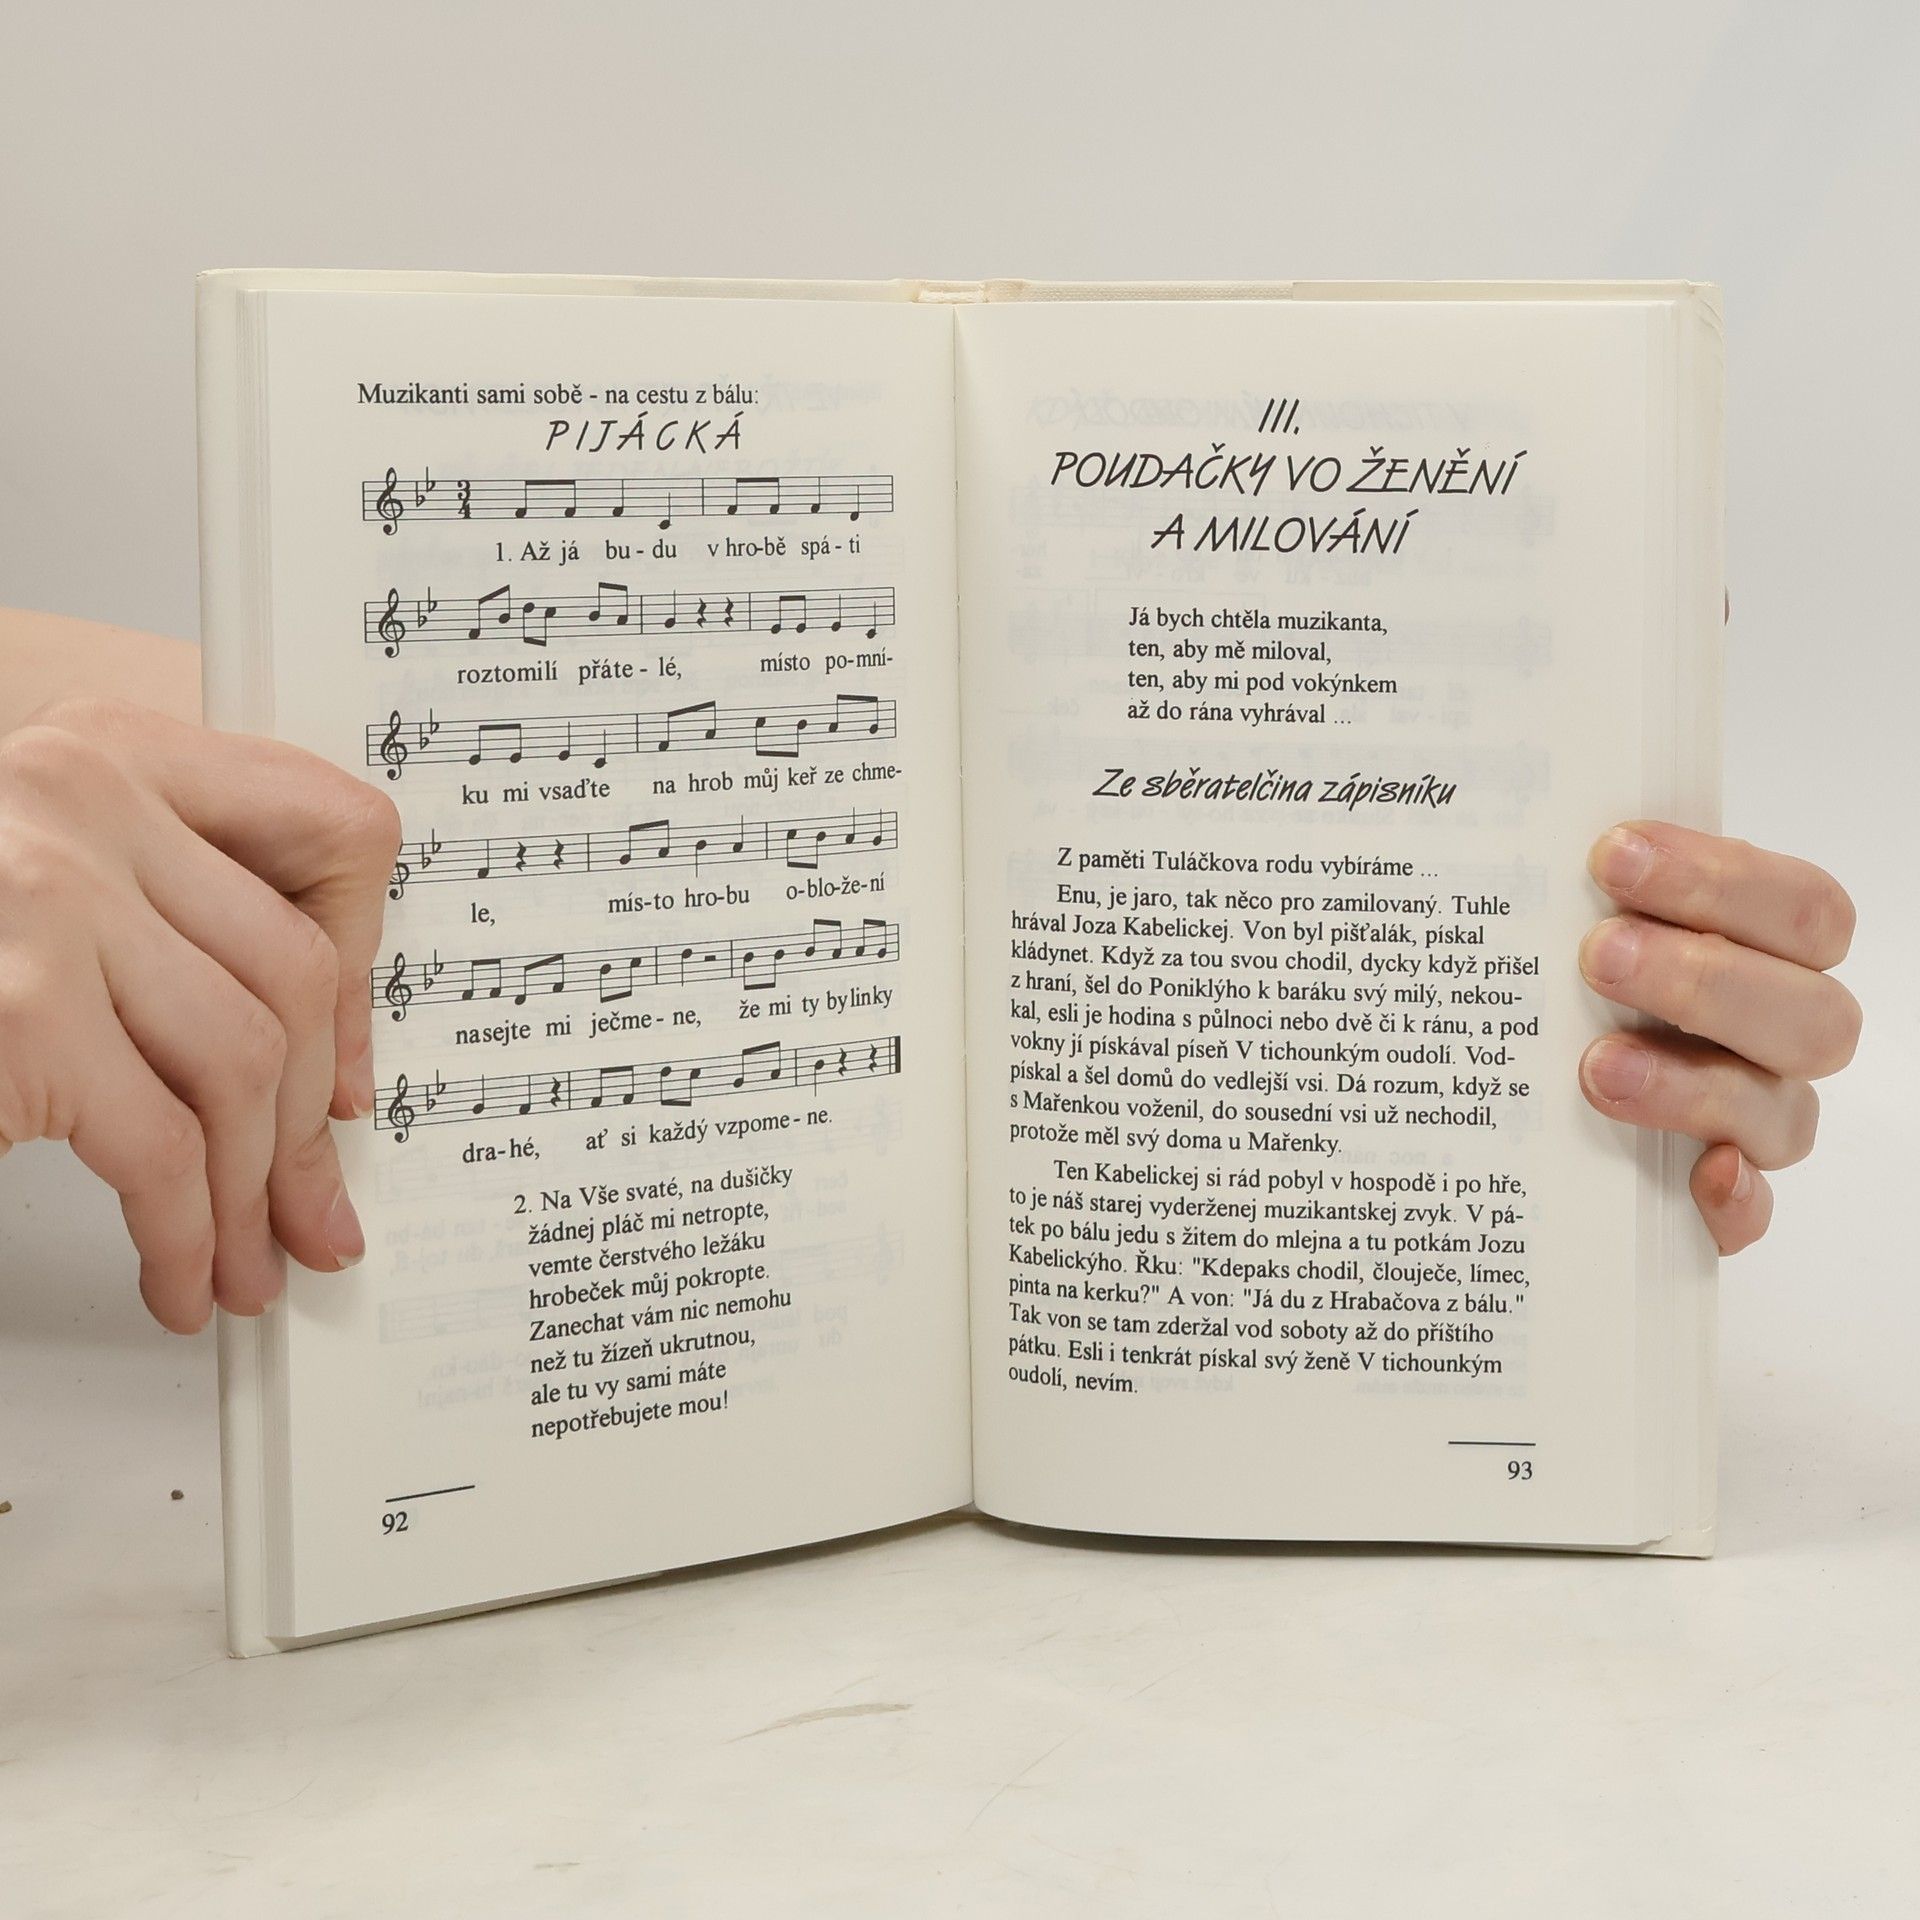 Muzikanti sami sobě - na cestu z bálu:
PIJÁCKÁ
3
4
1. Až já bu - du v hro-bě spá - ti
roztomilí přáte - lé, místo po-mní-
ku mi vsaďte na hrob můj keř ze chme-
le, mís-to hro-bu o-blo-že-ní
nasejte mi ječme - ne, že mi ty bylinky
dra-hé, ať si každý vzpome - ne.
2. Na Vše svaté, na dušičky
žádnej pláč mi netropte,
vemte čerstvého ležáku
hrobeček můj pokropte.
Zanechat vám nic nemohu
než tu žízeň ukrutnou,
ale tu vy sami máte
nepotřebujete mou!
92
III.
POUDAČKY VO ŽENĚNÍ
A MILOVÁNÍ
Já bych chtěla muzikanta,
ten, aby mě miloval,
ten, aby mi pod vokýnkem
až do rána vyhrával ...
Ze sběratelčina zápisníku
Z paměti Tuláčkova rodu vybíráme ...
Enu, je jaro, tak něco pro zamilovaný. Tuhle
hrával Joza Kabelickej. Von byl pišťalák, pískal
kládynet. Když za tou svou chodil, dycky když přišel
z hraní, šel do Poniklýho k baráku svý milý, nekou-
kal, esli je hodina s půlnoci nebo dvě či k ránu, a pod
vokny jí pískával píseň V tichounkým oudolí. Vod-
pískal a šel domů do vedlejší vsi. Dá rozum, když se
s Mařenkou voženil, do sousední vsi už nechodil,
protože měl svý doma u Mařenky.
Ten Kabelickej si rád pobyl v hospodě i po hře,
to je náš starej vyderženej muzikantskej zvyk. V pá-
tek po bálu jedu s žitem do mlejna a tu potkám Jozu
Kabelickýho. Řku: "Kdepaks chodil, člouječe, límec,
pinta na kerku?" A von: "Já du z Hrabačova z bálu."
Tak von se tam zderžal vod soboty až do příštího
pátku. Esli i tenkrát pískal svý ženě V tichounkým
oudolí, nevím.
93